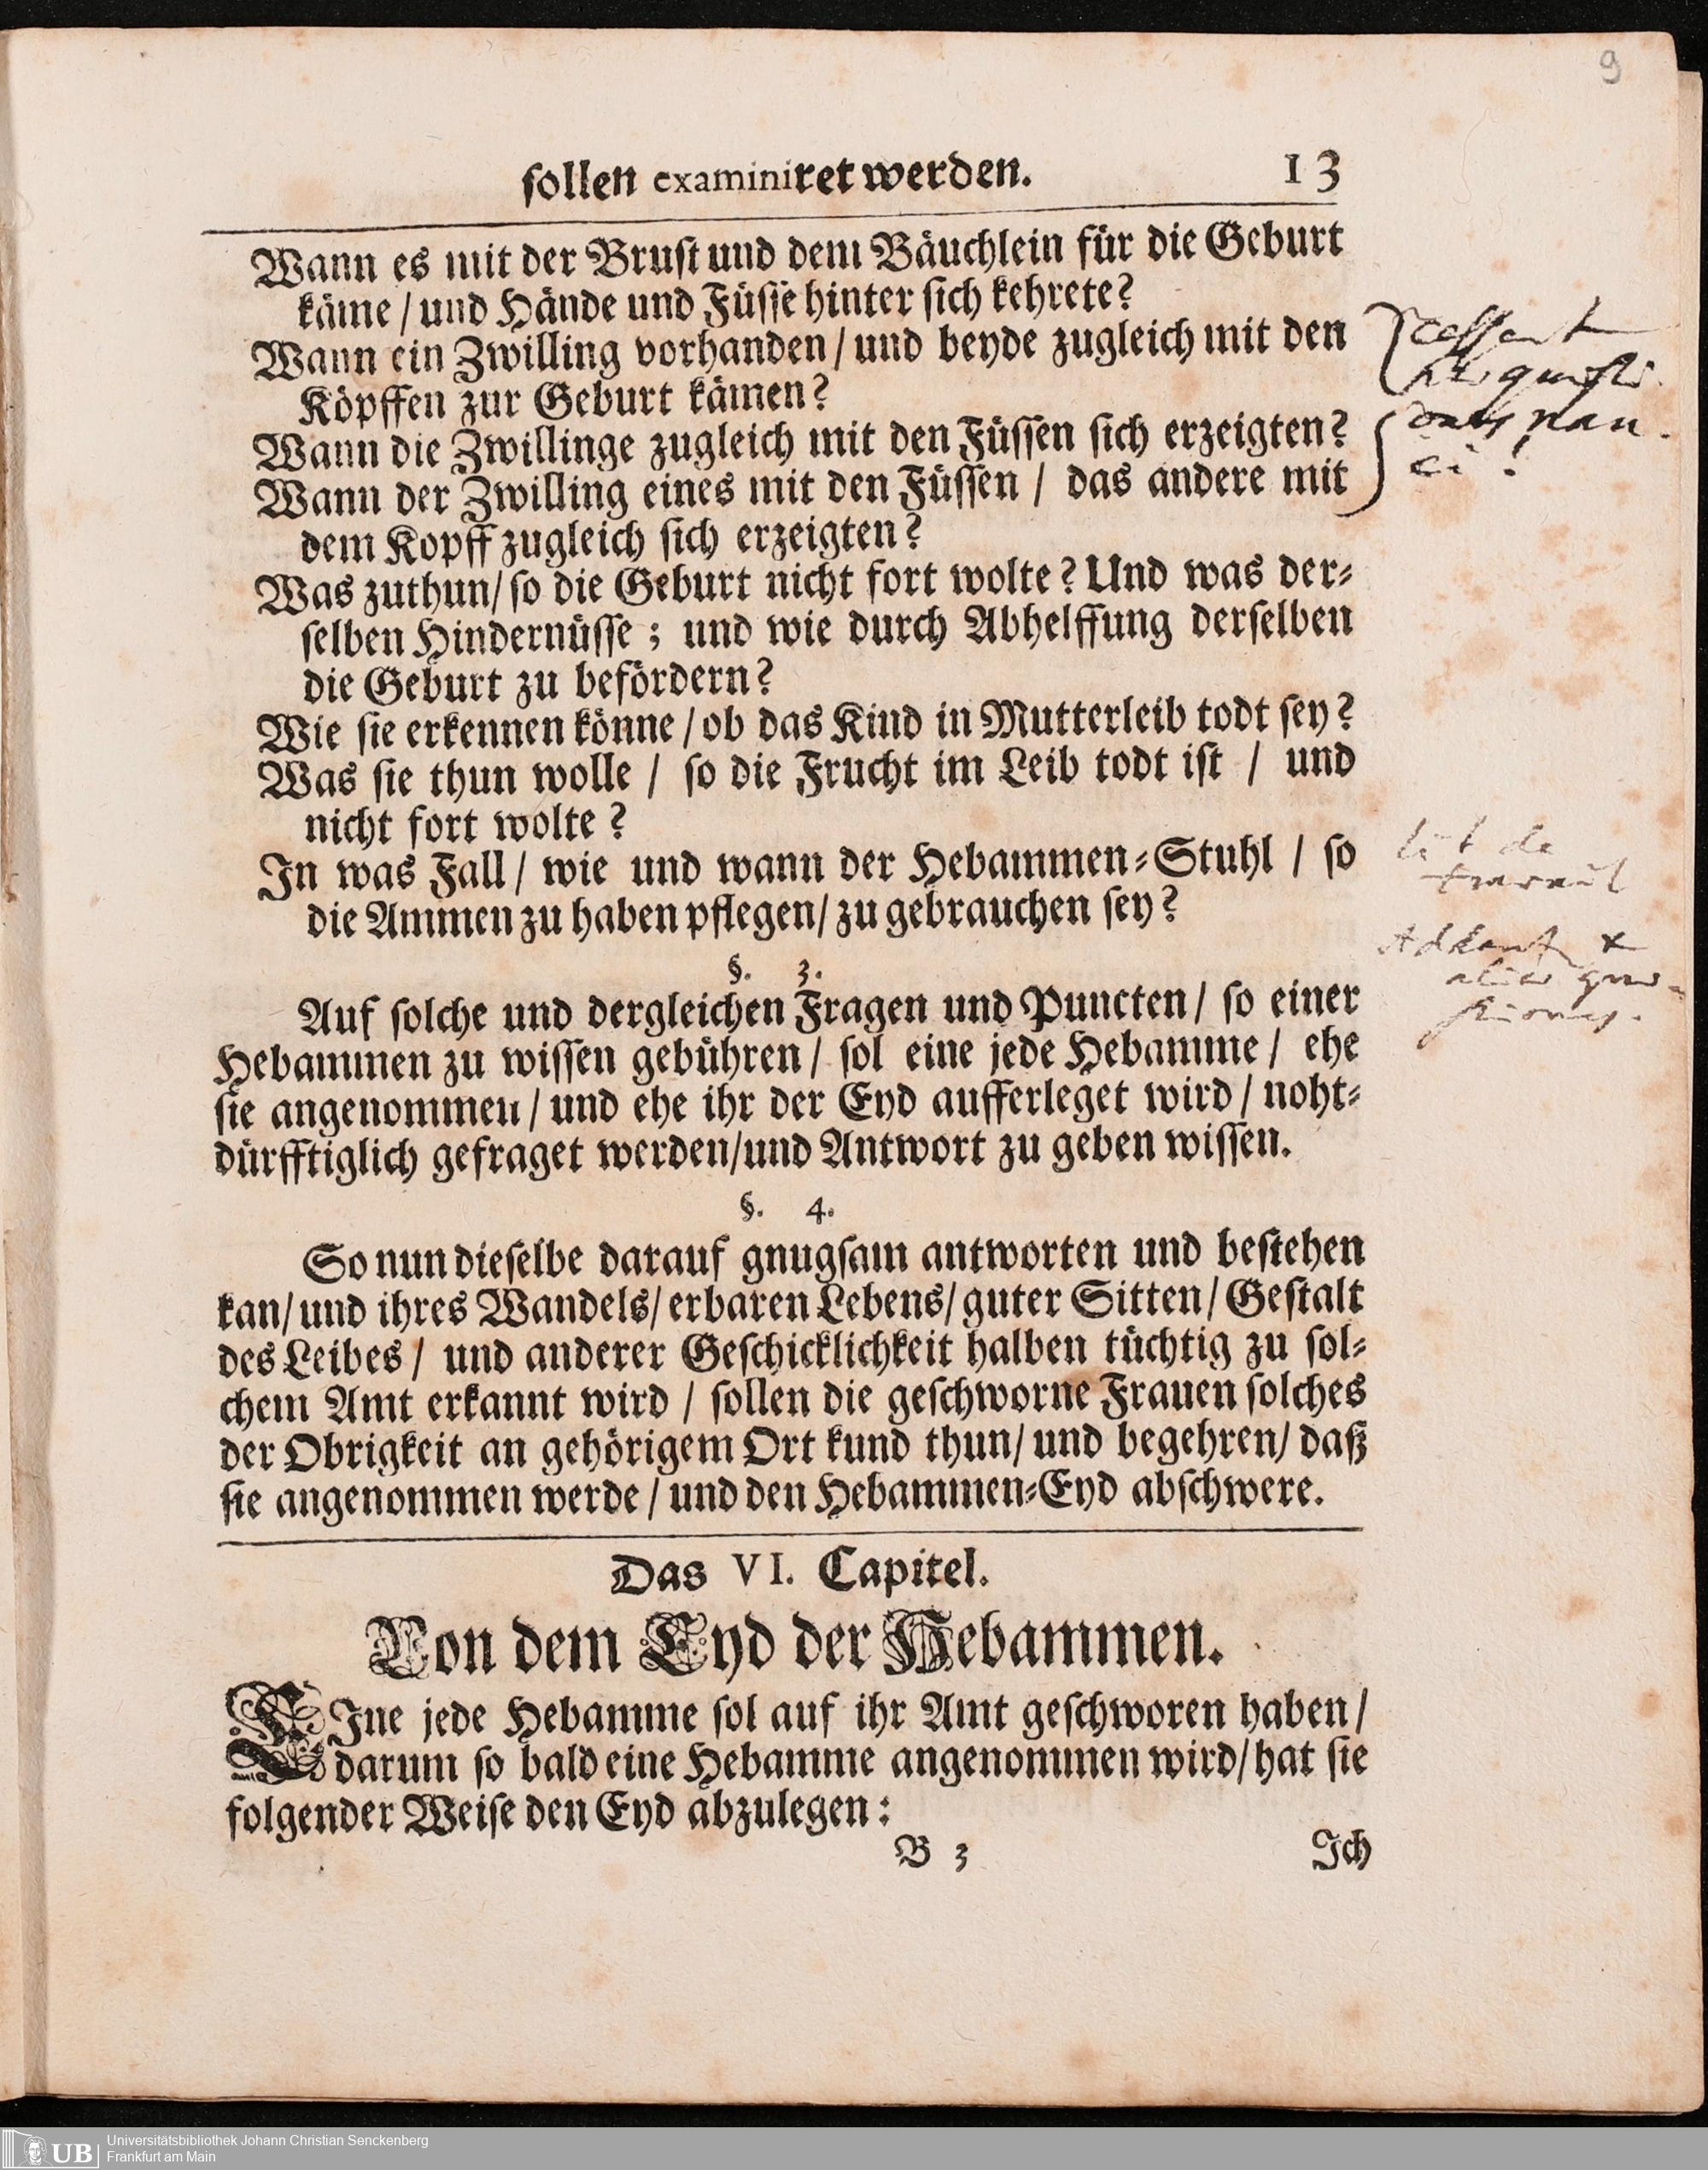 9
sollen examiniret werden. 13
Wann es mit der Brust und dem Bäuchlein für die Geburt
käme / und Hände und Füsse hinter sich kehrete?
Wann ein Zwilling vorhanden / und beyde zugleich mit den
Köpffen zur Geburt kämen?
Wann die Zwillinge zugleich mit den Füssen sich erzeigten?
Wann der Zwilling eines mit den Füssen / das andere mit
dem Kopff zugleich sich erzeigten?
Was zuthun / so die Geburt nicht fort wolte? Und was der-
selben Hindernüsse; und wie durch Abhelffung derselben
die Geburt zu befördern?
Wie sie erkennen könne / ob das Kind in Mutterleib todt sey?
Was sie thun wolle / so die Frucht im Leib todt ist / und
nicht fort wolte?
In was Fall / wie und wann der Hebammen-Stuhl / so
die Ammen zu haben pflegen / zu gebrauchen sey?
lit de
travail
§. 3.
Auf solche und dergleichen Fragen und Puncten / so einer
Hebammen zu wissen gebühren / sol eine jede Hebamme / ehe
sie angenommen / und ehe ihr der Eyd aufferleget wird / noht-
dürfftiglich gefraget werden / und Antwort zu geben wissen.
§. 4.
So nun dieselbe darauf gnugsam antworten und bestehen
kan / und ihres Wandels / erbaren Lebens / guter Sitten / Gestalt
des Leibes / und anderer Geschicklichkeit halben tüchtig zu sol-
chem Amt erkannt wird / sollen die geschworne Frauen solches
der Obrigkeit an gehörigem Ort kund thun / und begehren / daß
sie angenommen werde / und den Hebammen-Eyd abschwere.
Das VI. Capitel.
Von dem Eyd der Hebammen.
EIne jede Hebamme sol auf ihr Amt geschworen haben /
darum so bald eine Hebamme angenommen wird / hat sie
folgender Weise den Eyd abzulegen:
B 3 Ich
UB Universitätsbibliothek Johann Christian Senckenberg
Frankfurt am Main